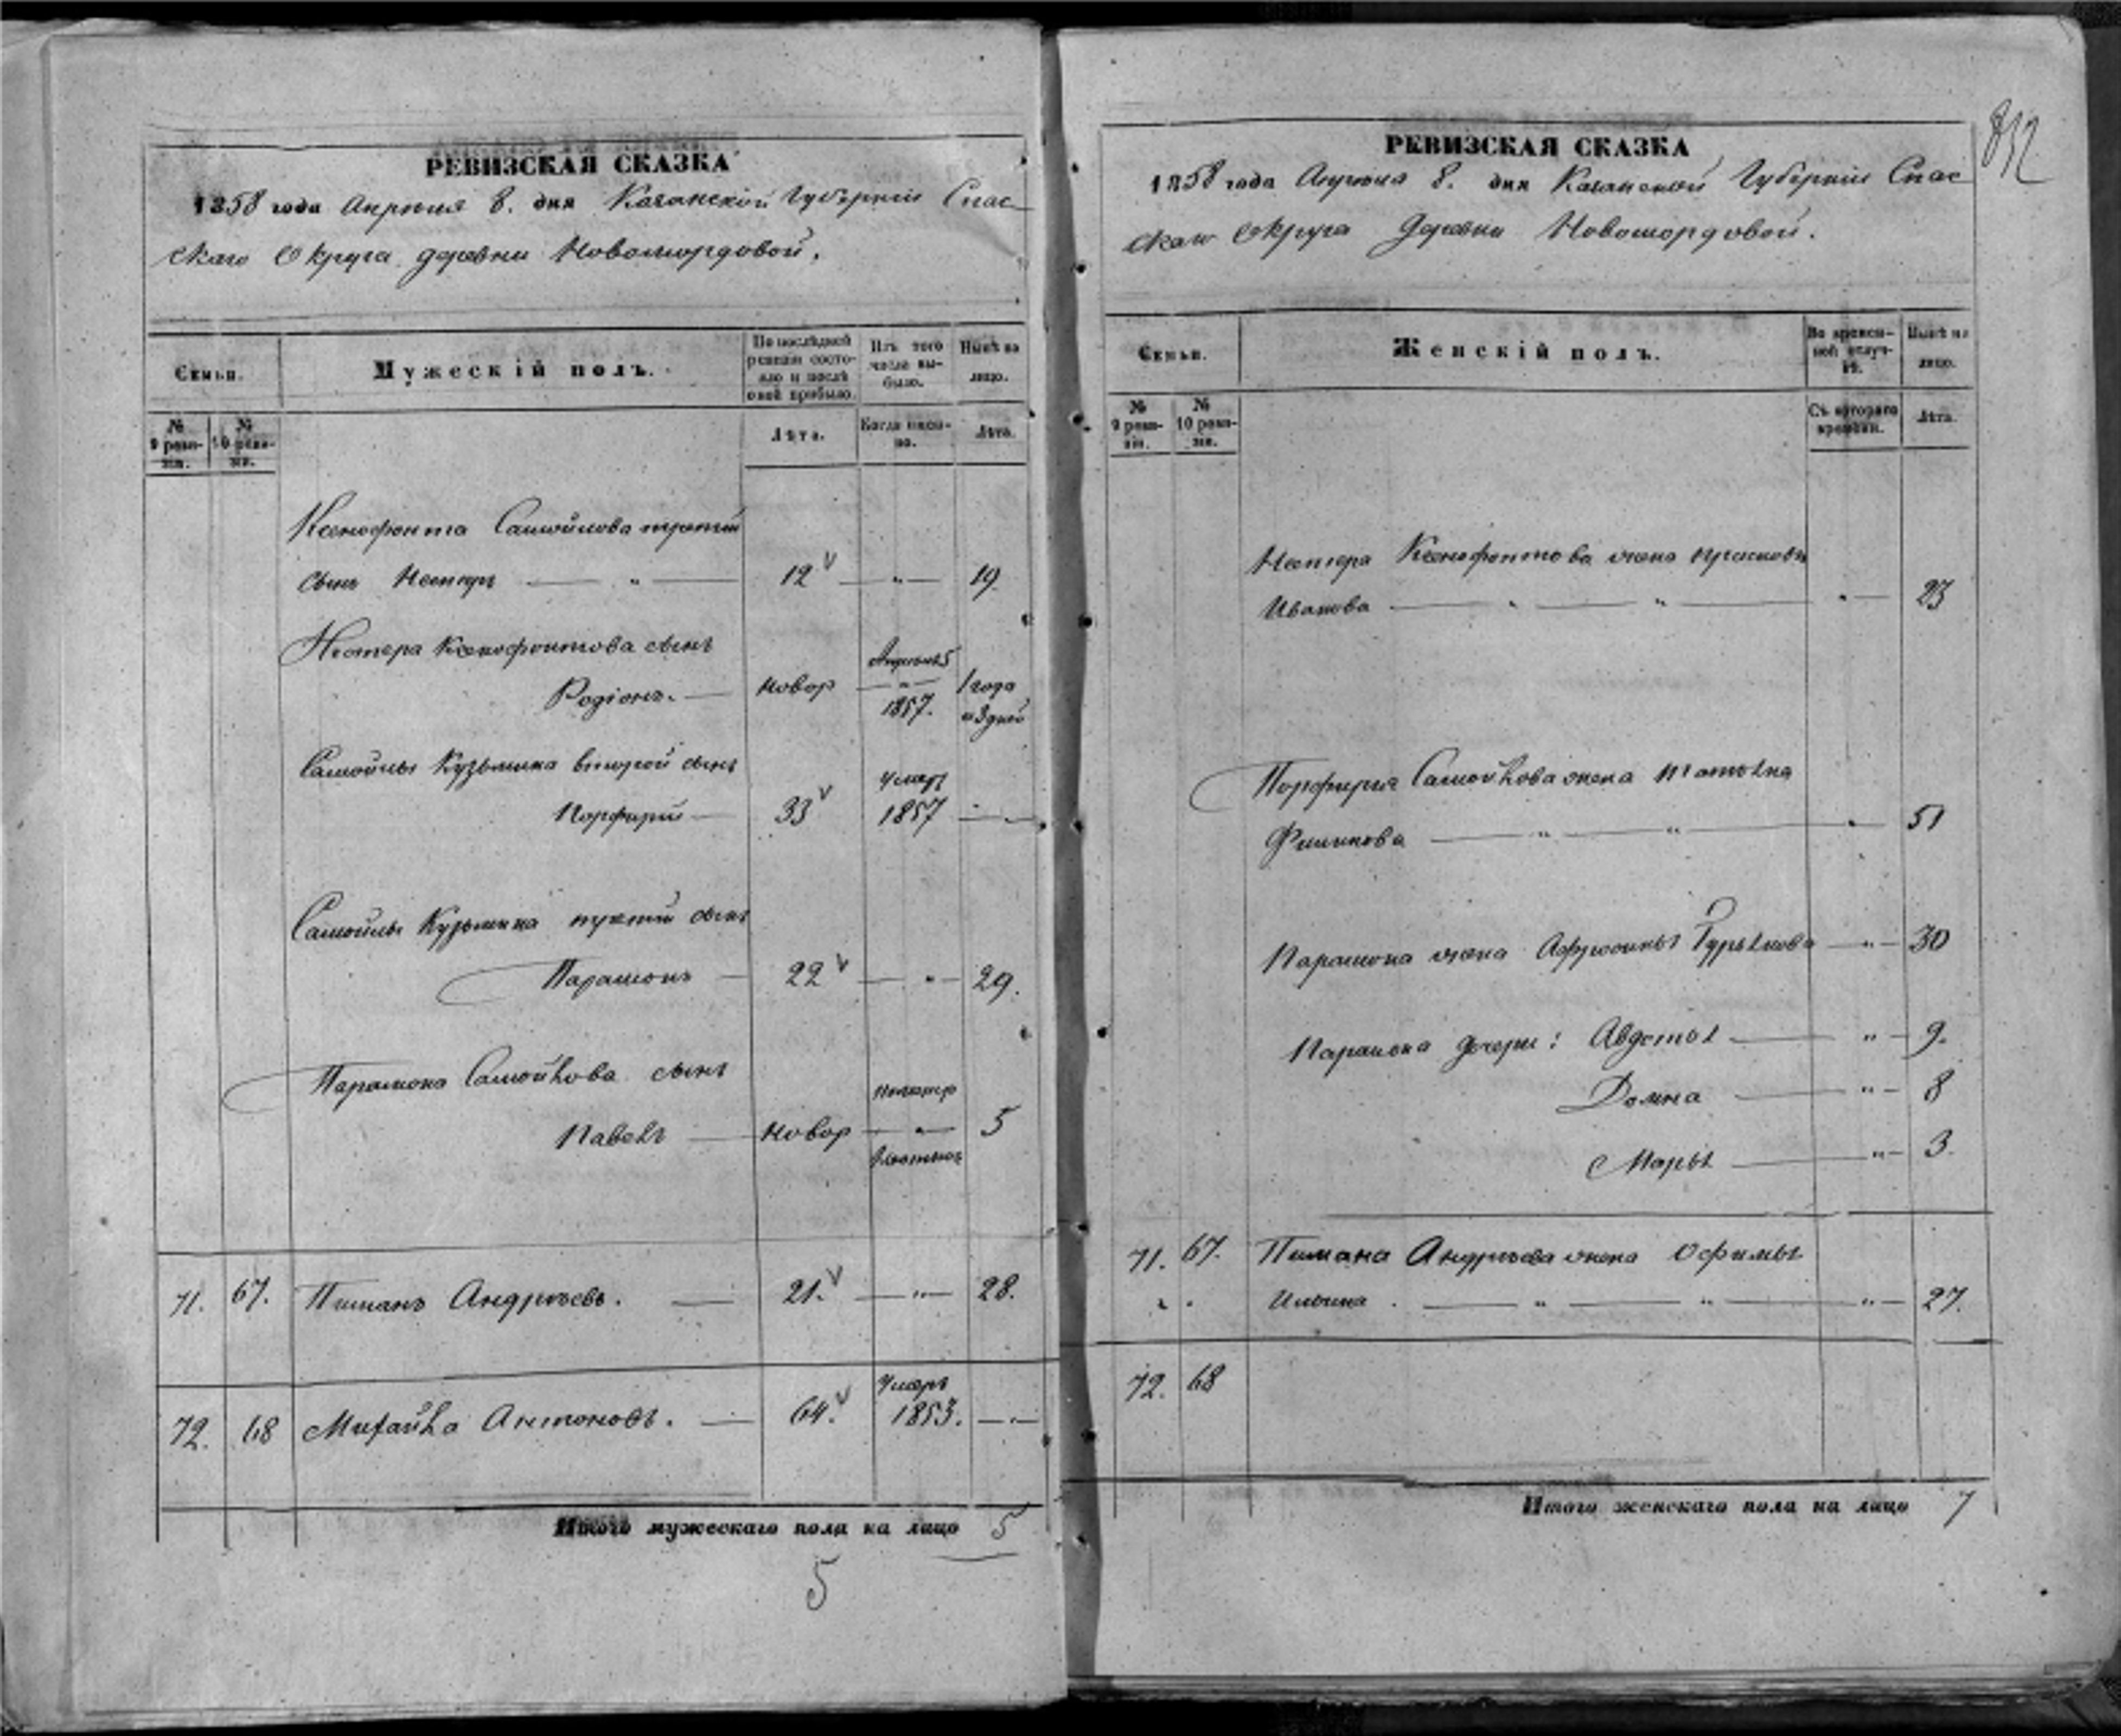 РЕВИЗСКАЯ СКАЗКА
1858 года Апреля 8. дня Казанской Губерніи Спас-
скаго Округа деревни Новомордовой.
Семьи.
Мужескій полъ.
По послѣдней ревизіи состояло и послѣ оной прибыло.
Изъ того числа выбыло.
Нынѣ на лицо.
№ 9 ревизіи.
№ 10 ревизіи.
Лѣта.
Когда именно.
Лѣта.
Ксенофонта Самойлова третій
сынъ Нестеръ — " — 12 — " — 19
Нестера Ксенофонтова сынъ
Родіонъ. — новор Апреля 5 " 1857. 1 года и 3 дней
Самойлы Кузьмина второй сынъ
Порфирій — 33 умеръ 1857 — " —
Самойлы Кузьмина третій сынъ
Парамонъ — 22 — " — 29.
Парамона Самойлова сынъ
Павелъ — новор — " — 5
71. 67. Пиманъ Андреевъ. — 21. — " — 28.
72. 68 Михайла Антоновъ. — 64. умеръ 1853. — " —
Итого мужескаго пола на лицо 5
5
852
РЕВИЗСКАЯ СКАЗКА
1858 года Апреля 8. дня Казанской Губерніи Спас
скаго Округа деревни Новомордовой.
Семьи.
Женскій полъ.
Во временной отлучкѣ.
Нынѣ на лицо.
№ 9 ревизіи.
№ 10 ревизіи.
Съ котораго времени.
Лѣта.
Нестера Ксенофонтова жена Прасковья
Иванова — " — " — " — 23
Порфирія Самойлова жена Татьяна
— " — " — " — 51
Парамона жена Гурьянова — " — 30
Парамона дочери: Авдотья — " — 9.
Домна — " — 8
Марья — " — 3.
71. 67. Пимана Андреева жена Офимья
Ильина. — " — " — " — 27.
72. 68
Итого женскаго пола на лицо 7